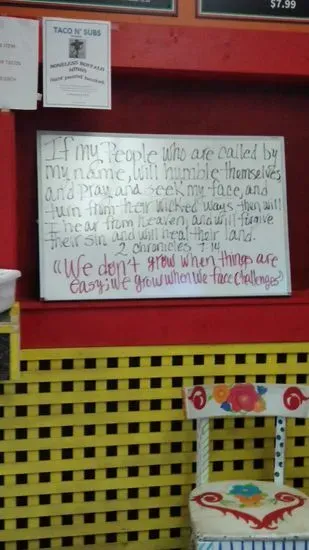 $7.99
TACO N' SUBS
If my People who are called by
my name, will humble themselves
and pray and seek my face, and
turn from their wicked ways then will
I hear from heaven, and will forgive
their sin and will heal their land.
2 chronicles 7:14
"We don't grow when things are
easy; we grow when we face challenges"